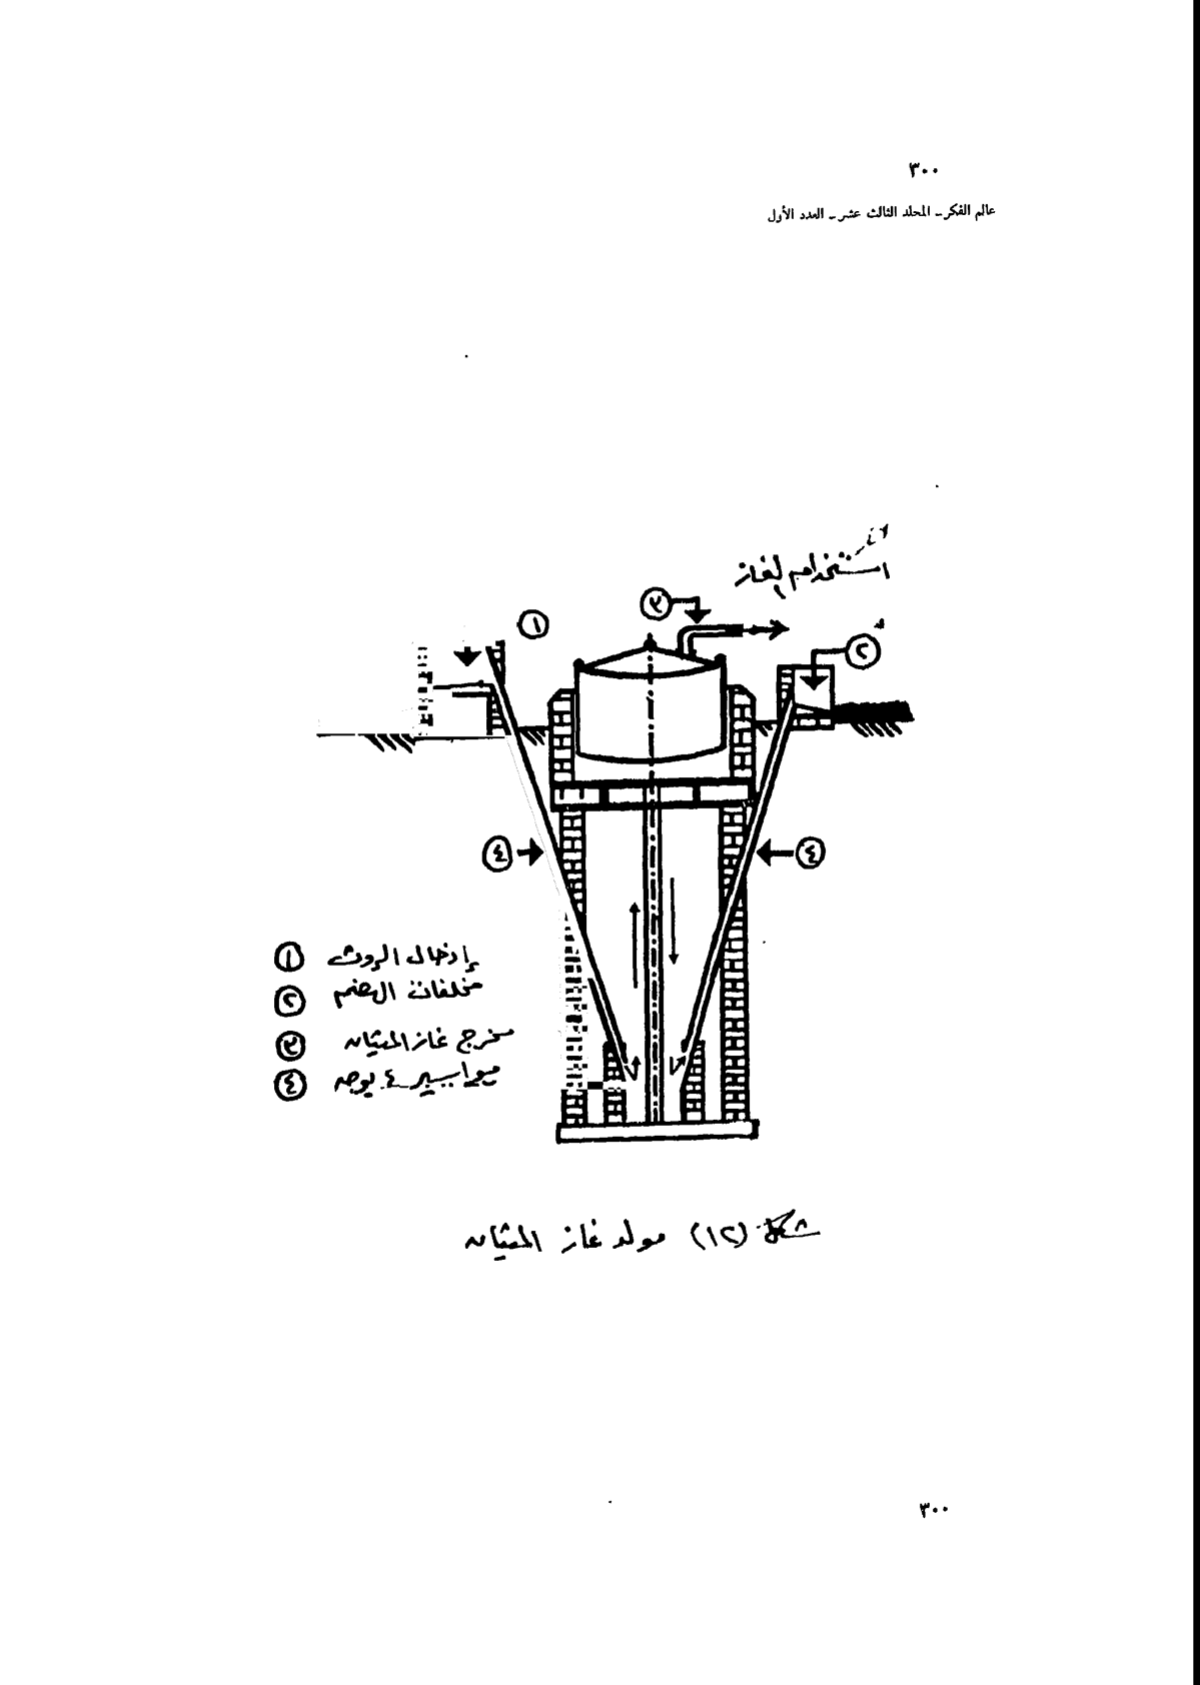 ٣٠٠
عالم الفكر - المجلد الثالث عشر - العدد الأول
استخدام الغاز
٣
١
٢
٤
٤
١ إدخال الروث
٢ مخلفات الهضم
٣ مخرج غاز الميثان
٤ مواسير ٤ بوصه
شكل (١٢) مولد غاز الميثان
٣٠٠